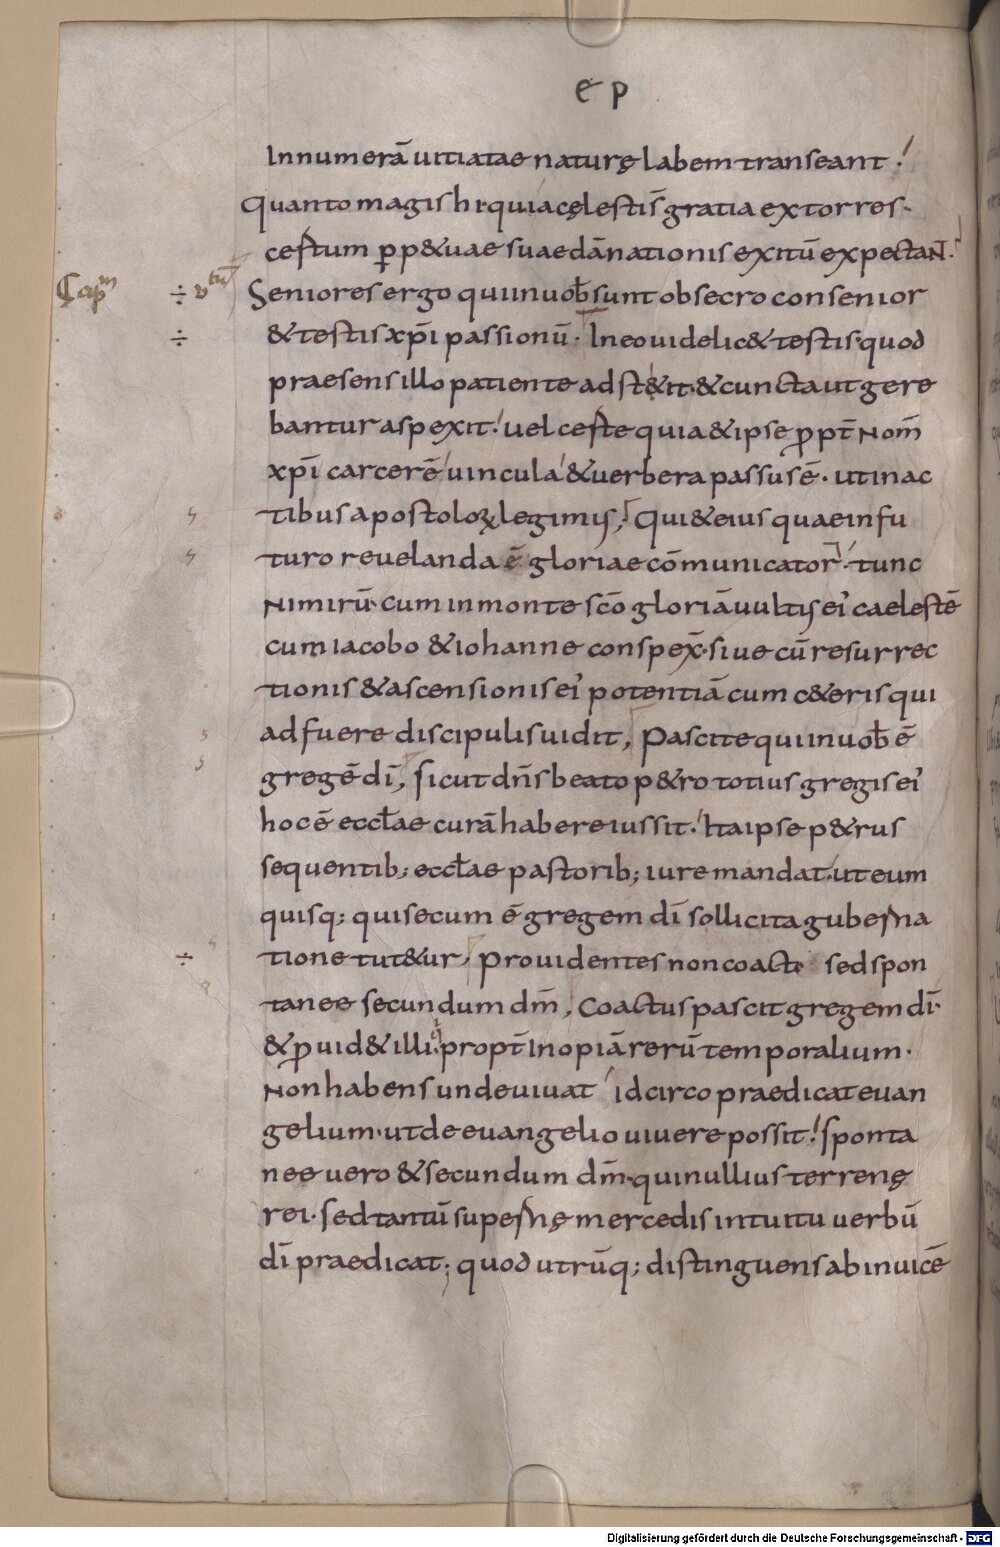 e p
Innumerā uitiatae naturę labem transeant.
Quanto magis hi qui a cęlestis̄ gratia extorres.
cestum ꝑp&uae suae dānationis exitū expectaɴt.
Cap^m ÷ v^tu Seniores ergo qui in uoƀ sunt obsecro consenior
÷ & testis xp̄i passionū. In eo uidelic& testis quod
praesens illo patiente adst&it. & cuncta ut gere
bantur aspexit. uel cefte quia & ipse ꝓpt̄ nom̄
xp̄i carcerē uincula & uerbera passus ē. ut in ac
tibus apostoloꝝ legimus, Qui & eius quae in fu
turo reuelanda ē gloriae cōmunicator. tunc
nimirū cum in monte sc̄o gloriā uultus ei' caelestē
cum iacobo & iohanne conspex̄. siue cū resurrec
tionis & ascensionis ei' potentiā cum c&eris qui
adfuere discipulis uidit, Pascite qui in uoƀ ē
gregē dī, sicut dn̄s beato p&ro totius gregis ei'
hoc ē eccƚae curā habere iussit. Ita ipse p&rus
sequentib; eccƚae pastorib; iure mandat. ut eum
quisq; qui secum ē gregem dī sollicita guberna
÷ tione tut&ur, Prouidentes non coacte sed spon
tanee secundum dm̄, Coactus pascit gregem dī.
& ꝓuid& illi. propt̄ inopiā rerū temporalium.
Non habens unde uiuat idcirco praedicat euan
gelium. ut de euangelio uiuere possit. sponta
nee uero & secundum dm̄. qui nullius terrenę
rei. sed tantū supernę mercedis intuitu uerbū
dī praedicat; quod utrūq; distinguens ab inuicē
Digitalisierung gefördert durch die Deutsche Forschungsgemeinschaft - DFG